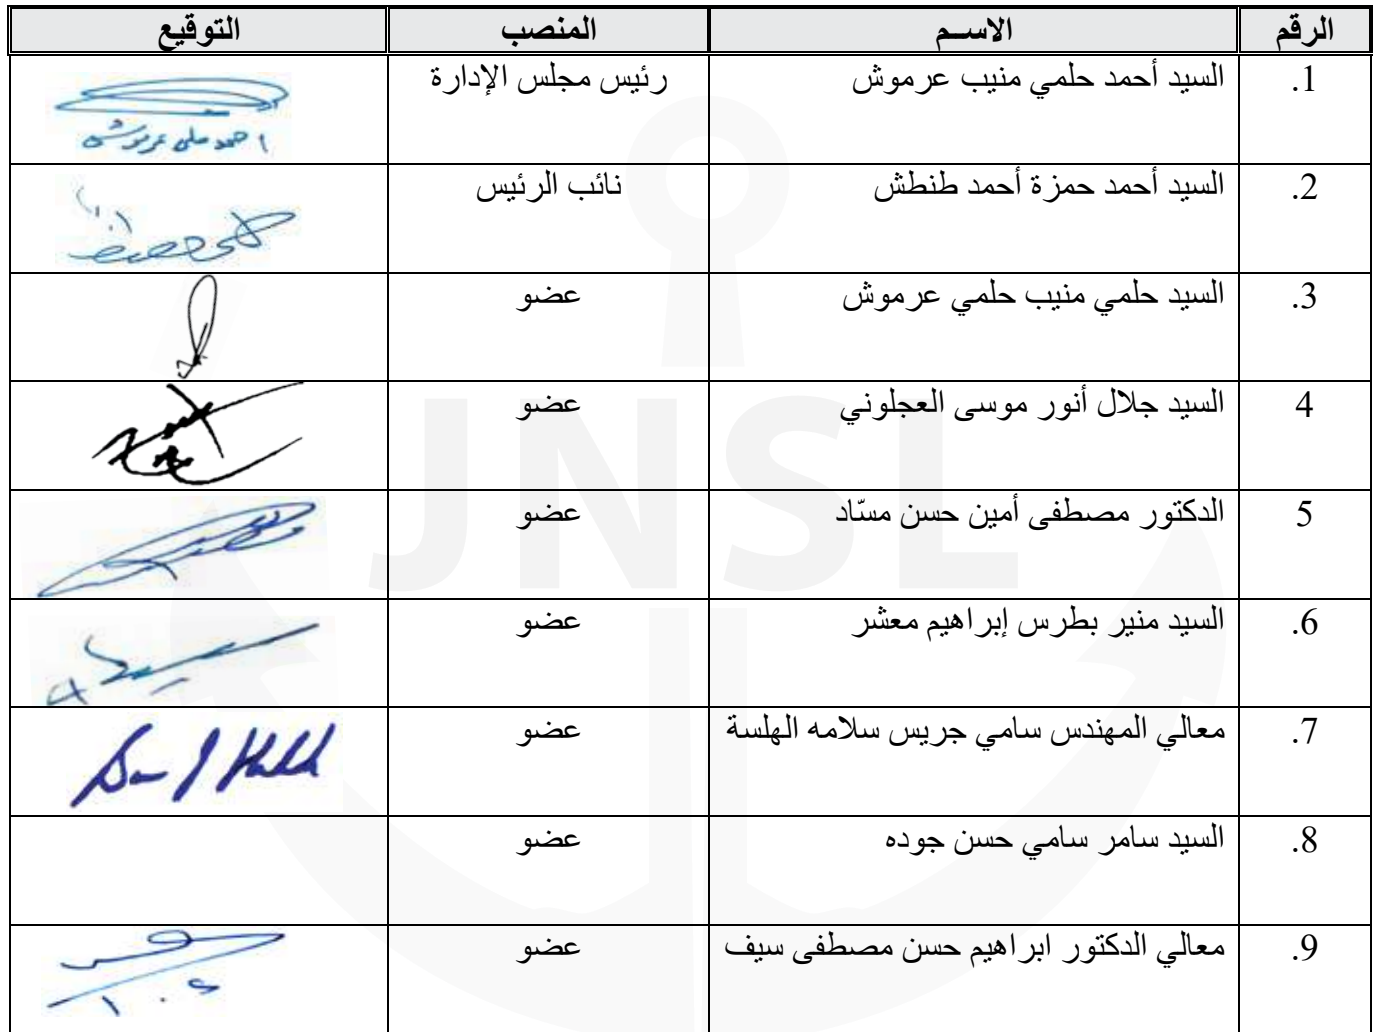 الرقم الاســم المنصب التوقيع
1. السيد أحمد حلمي منيب عرموش رئيس مجلس الإدارة
احمد حلمي عرموش
2. السيد أحمد حمزة أحمد طنطش نائب الرئيس
3. السيد حلمي منيب حلمي عرموش عضو
4 السيد جلال أنور موسى العجلوني عضو
5 الدكتور مصطفى أمين حسن مسّاد عضو
6. السيد منير بطرس إبراهيم معشر عضو
7. معالي المهندس سامي جريس سلامه الهلسة عضو
8. السيد سامر سامي حسن جوده عضو
9. معالي الدكتور ابراهيم حسن مصطفى سيف عضو
JNSL